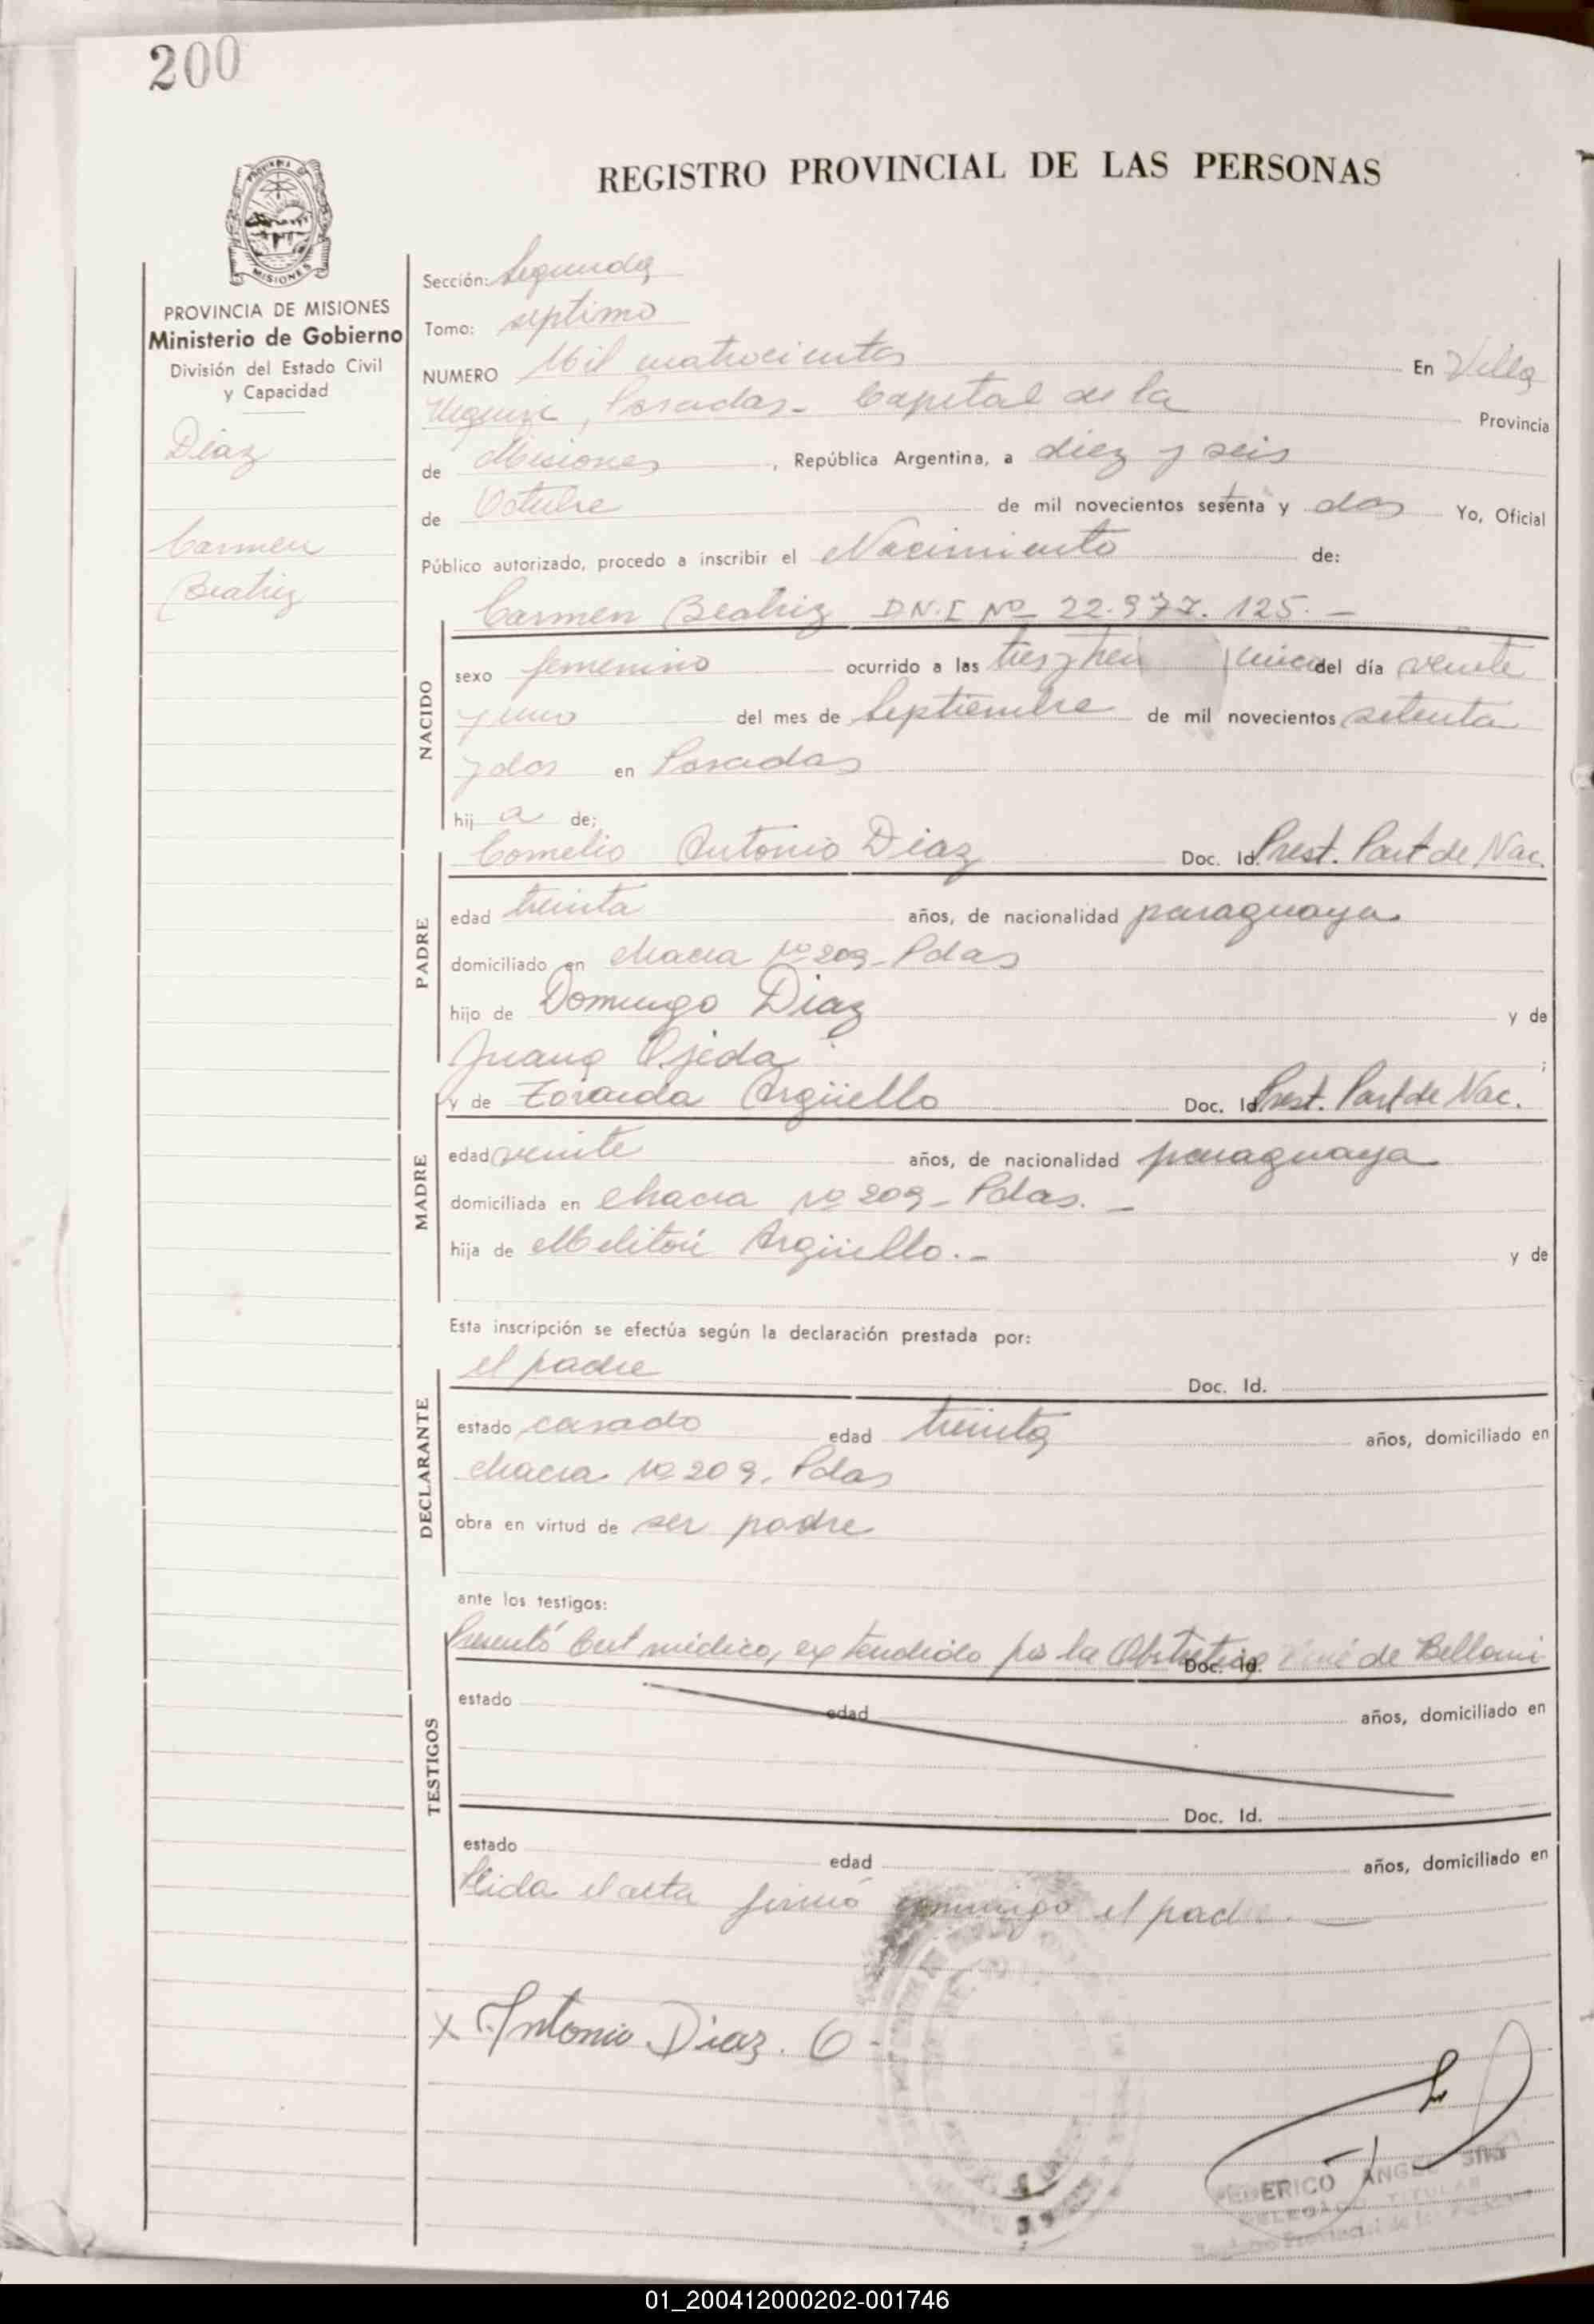 200
REGISTRO PROVINCIAL DE LAS PERSONAS
MISIONES
PROVINCIA DE MISIONES
Ministerio de Gobierno
División del Estado Civil
y Capacidad
Diaz
Carmen
Beatriz
Sección: Segunda
Tomo: septimo
NUMERO Mil cuatrocientos En Villa
Urquiza, Posadas - Capital de la Provincia
de Misiones, República Argentina, a diez y seis
de Octubre de mil novecientos setenta y dos Yo, Oficial
Público autorizado, procedo a inscribir el Nacimiento de:
Carmen Beatriz D.N.I Nº 22.977.125.-
NACIDO
sexo femenino ocurrido a las tres y del día veinte
y uno del mes de Septiembre de mil novecientos setenta
y dos en Posadas
hij a de;
Cornelio Antonio Diaz Doc. Id. Prest. Part de Nac.
PADRE
edad treinta años, de nacionalidad paraguaya
domiciliado en chacra Nº 209 - Pdas
hijo de Domingo Diaz y de
Juana Ojeda ;
y de Zoraida Argüello Doc. Id. Prest. Part de Nac.
MADRE
edad veinte años, de nacionalidad paraguaya
domiciliada en chacra Nº 209 - Pdas. -
hija de Melitón Argüello. - y de
Esta inscripción se efectúa según la declaración prestada por:
el padre Doc. Id.
DECLARANTE
estado casado edad treinta años, domiciliado en
chacra Nº 209. Pdas
obra en virtud de ser padre
ante los testigos:
Presentó Cert médico, extendido por la Obstetra de Belloni
Doc. Id.
TESTIGOS
estado edad años, domiciliado en
Doc. Id.
estado edad años, domiciliado en
Leida el acta firmó conmigo el pad
x Antonio Diaz. O -
FEDERICO ANGEL
DELEGADO TITULAR
Registro Provincial de las Personas
01_200412000202-001746